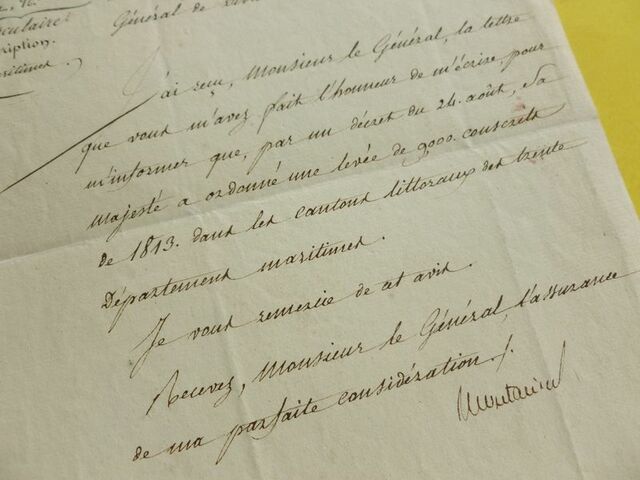 Général de
ription.
J'ai reçu, Monsieur le Général, la lettre
que vous m'avez fait l'honneur de m'écrire, pour
m'informer que, par un décret du 24. août, Sa
Majesté a ordonné une levée de 9000. conscrits
de 1813. dans les cantons littoraux des trente
Départemens maritimes.
Je vous remercie de cet avis.
Recevez, Monsieur le Général, l'assurance
de ma parfaite considération /.